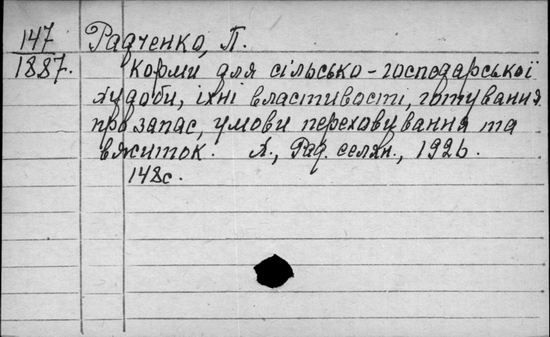 147 Радченко, П.
1887. Корми для сільсько-господарської
худоби, їхні властивості, готування
про запас, умови переховування та
вжиток. Х., Рад. селян., 1926.
148с.